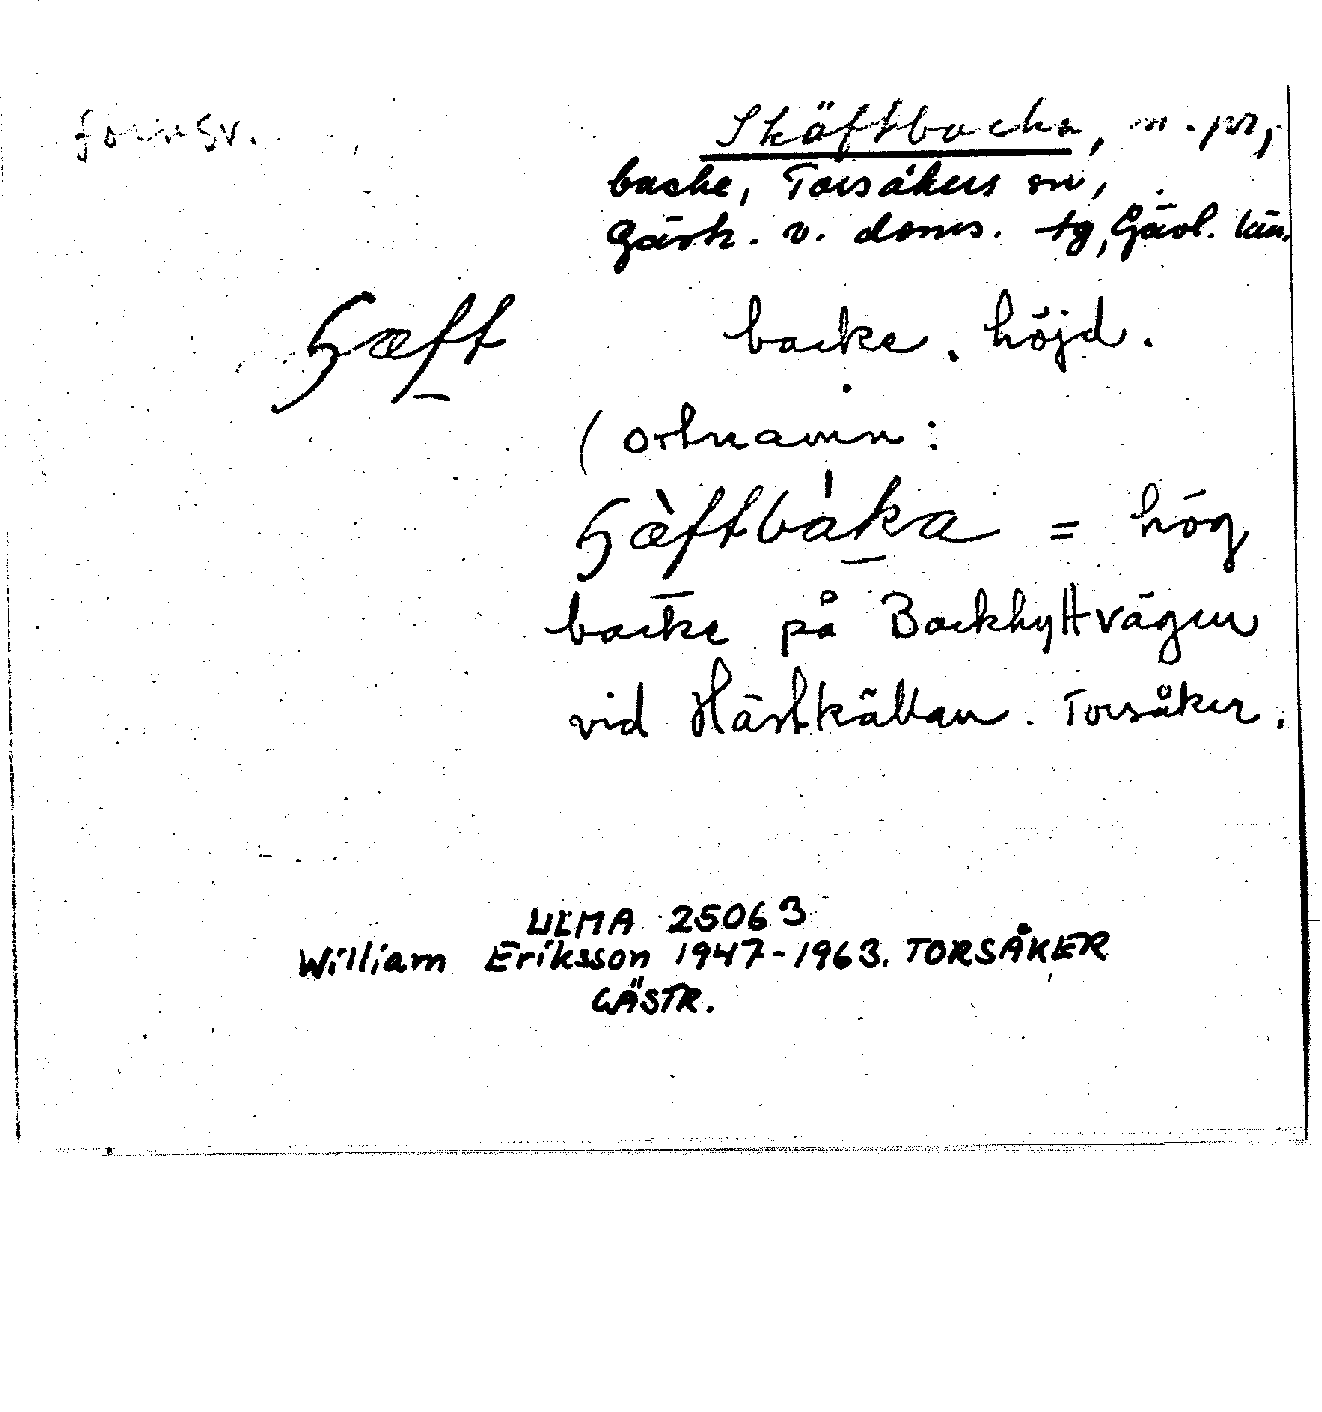 fornsv.
Skäftbacka, n. pr,
backe, Torsåkers sn,
Gästr. v. doms. tg, Gävl. län.
ʃæft backe, höjd.
(ortnamn:
ʃæ̀ftbáka = hög
backe på Backhyttvägen
vid Hästkällan. Torsåker.
ULMA 25063
William Eriksson 1947-1963. TORSÅKER
GÄSTR.